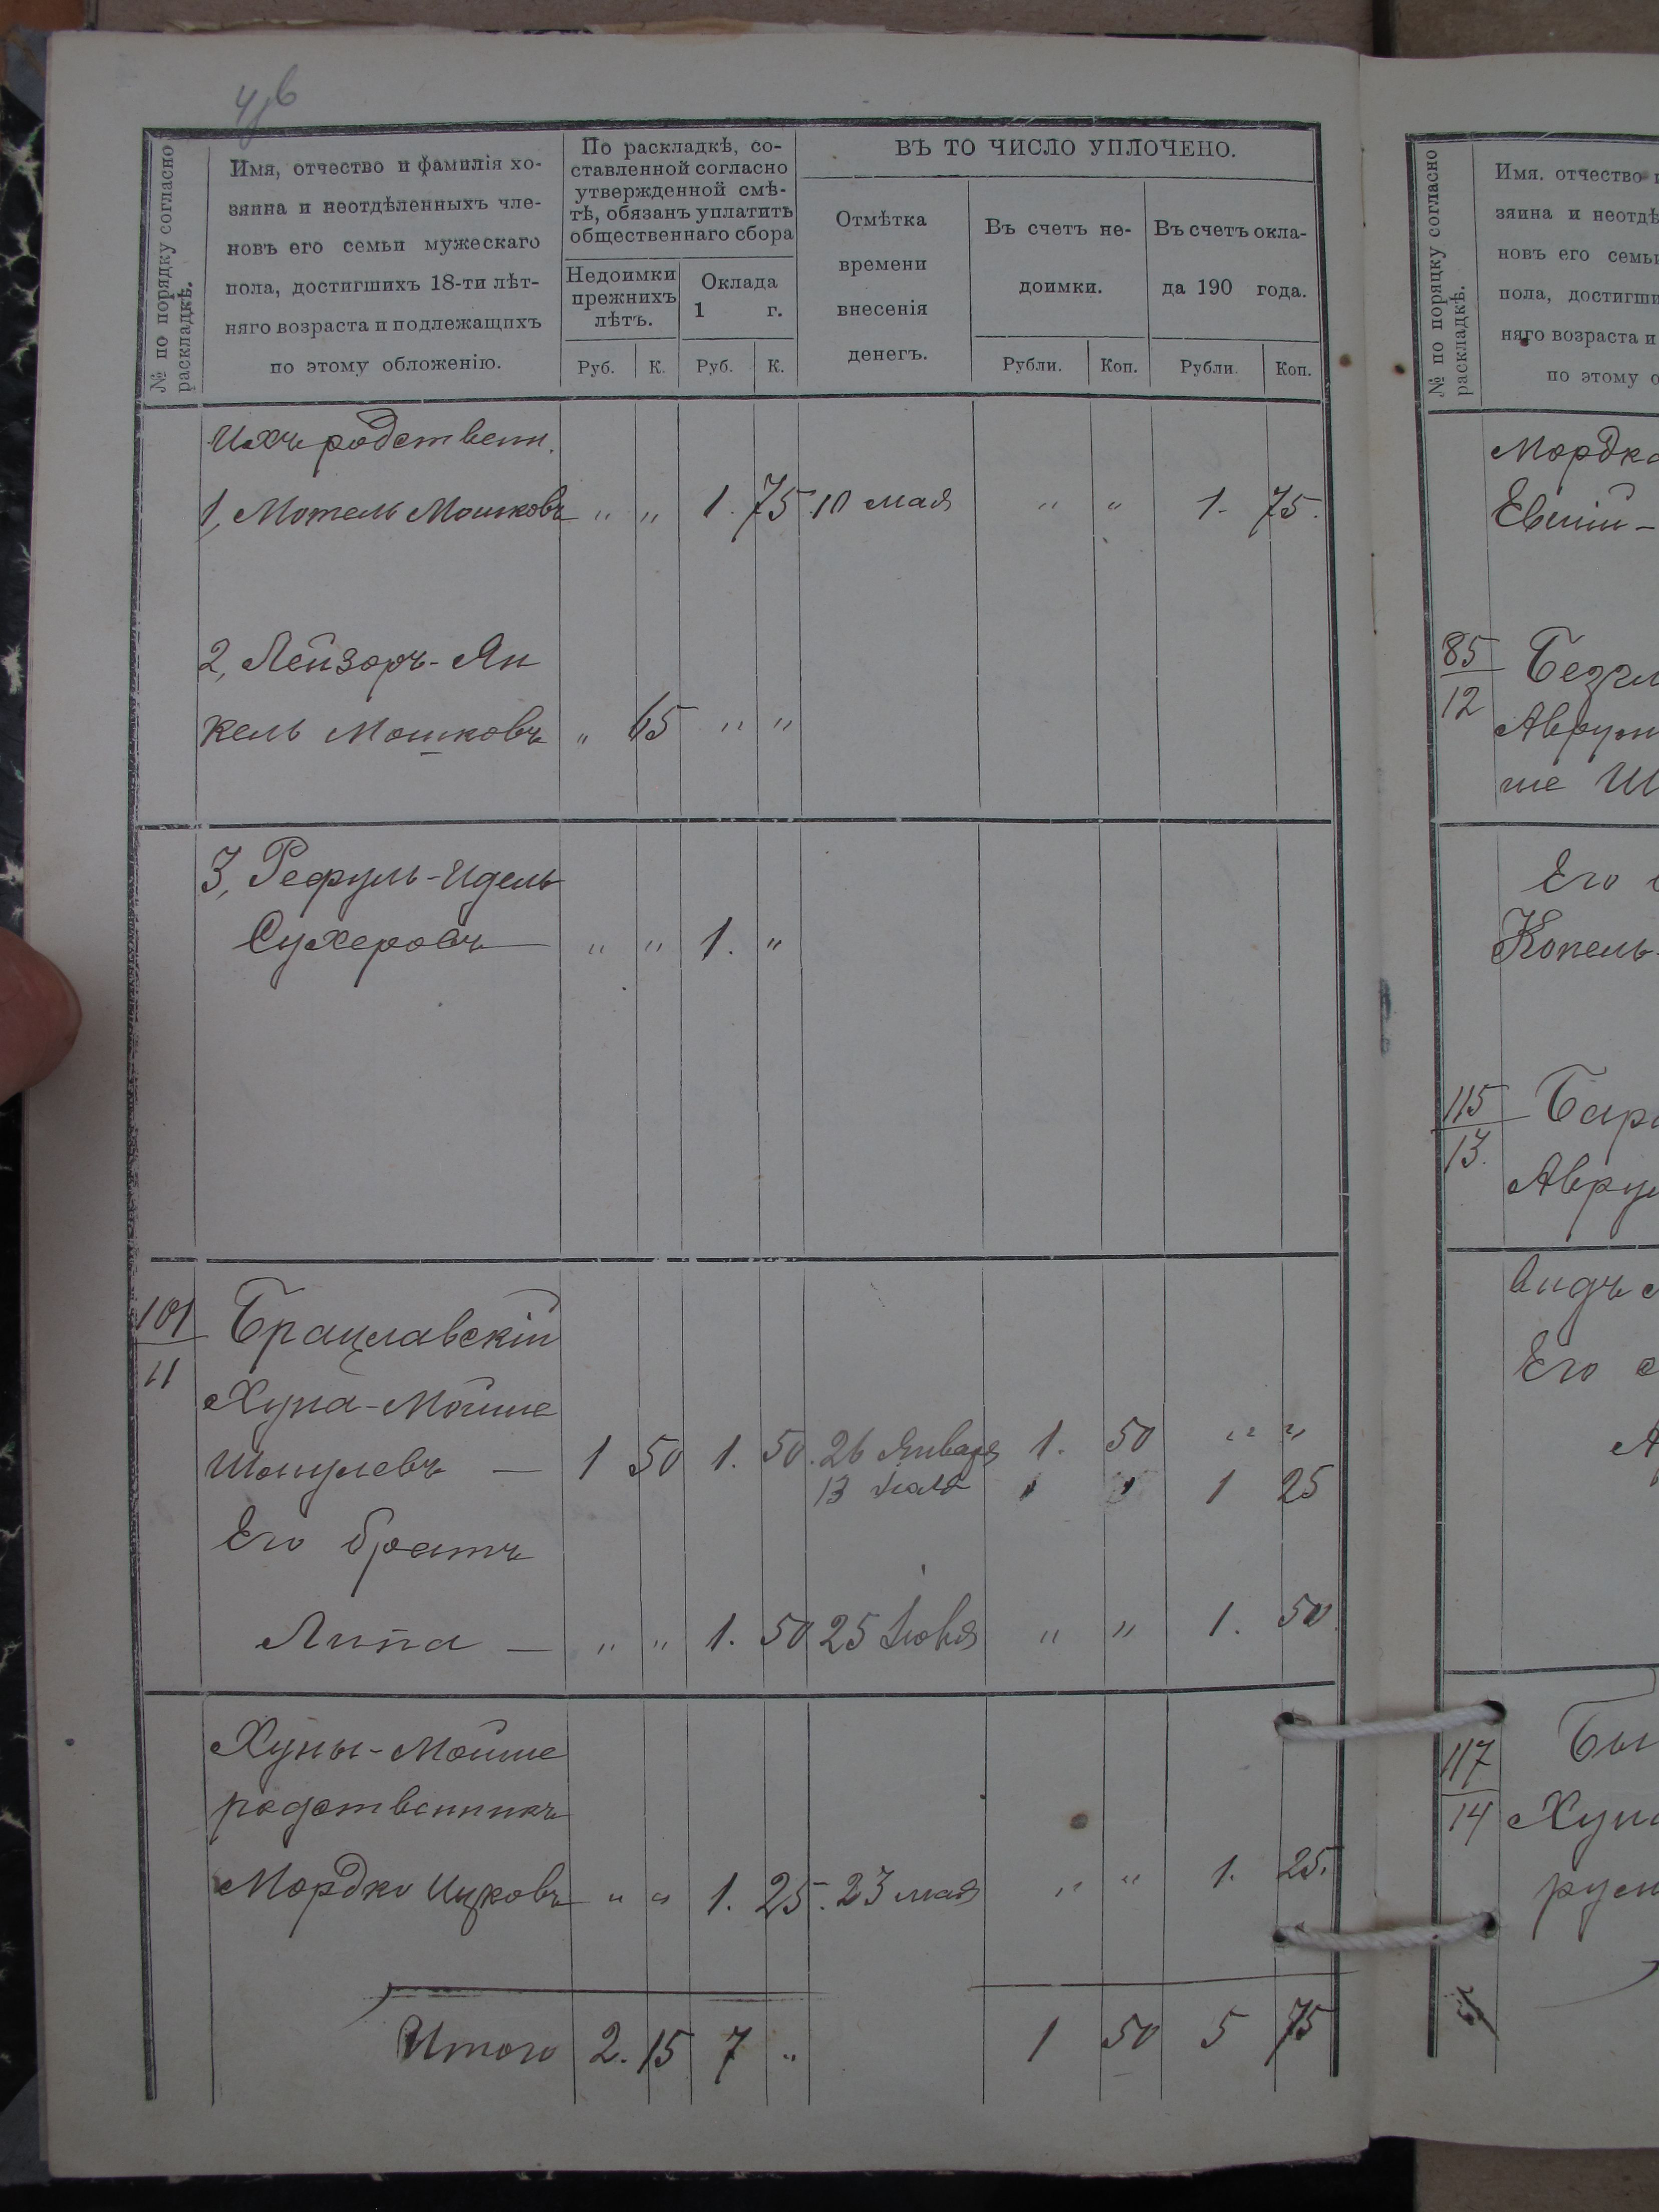 № по порядку согласно
раскладкѣ.
Имя, отчество и фамилія хо-
зяина и неотдѣленныхъ чле-
новъ его семьи мужескаго
пола, достигшихъ 18-ти лѣт-
няго возраста и подлежащихъ
по этому обложенію.
По раскладкѣ, со-
ставленной согласно
утвержденной смѣ-
тѣ, обязанъ уплатить
общественнаго сбора
Недоимки
прежнихъ
лѣтъ.
Оклада
1 г.
Руб. К. Руб. К.
ВЪ ТО ЧИСЛО УПЛОЧЕНО.
Отмѣтка
времени
внесенія
денегъ.
Въ счетъ не-
доимки.
Въ счетъ окла-
да 190 года.
Рубли. Коп. Рубли. Коп.
Ихъ родственн.
1, Мотель Мошковъ " " 1. 75 10 мая " " 1. 75.
2, Лейзоръ-Ян
кель Мошковъ " 65 " "
3, Рефуль-Идель
Сухеровъ " " 1. "
101
11
Брацлавскій
Хуна-Мойше
Шмулевъ — 1 50 1. 50. 26 Января 1. 50 " "
13 1 25
Его братъ
Липа — " " 1. 50 25 " " 1. 50.
Хуны-Мойше
родственникъ
Мордко Ицковъ " " 1. 25. 23 мая " " 1. 25.
Итого 2. 15 7 " 1 50 5 75
№ по порядку согласно
раскладкѣ.
Имя. отчество
зяина и неотдѣ
новъ его семь
пола, достигши
няго возраста и
по этому о
Мордко
85
12
Его
Копель-
115
13.
Его
117
14